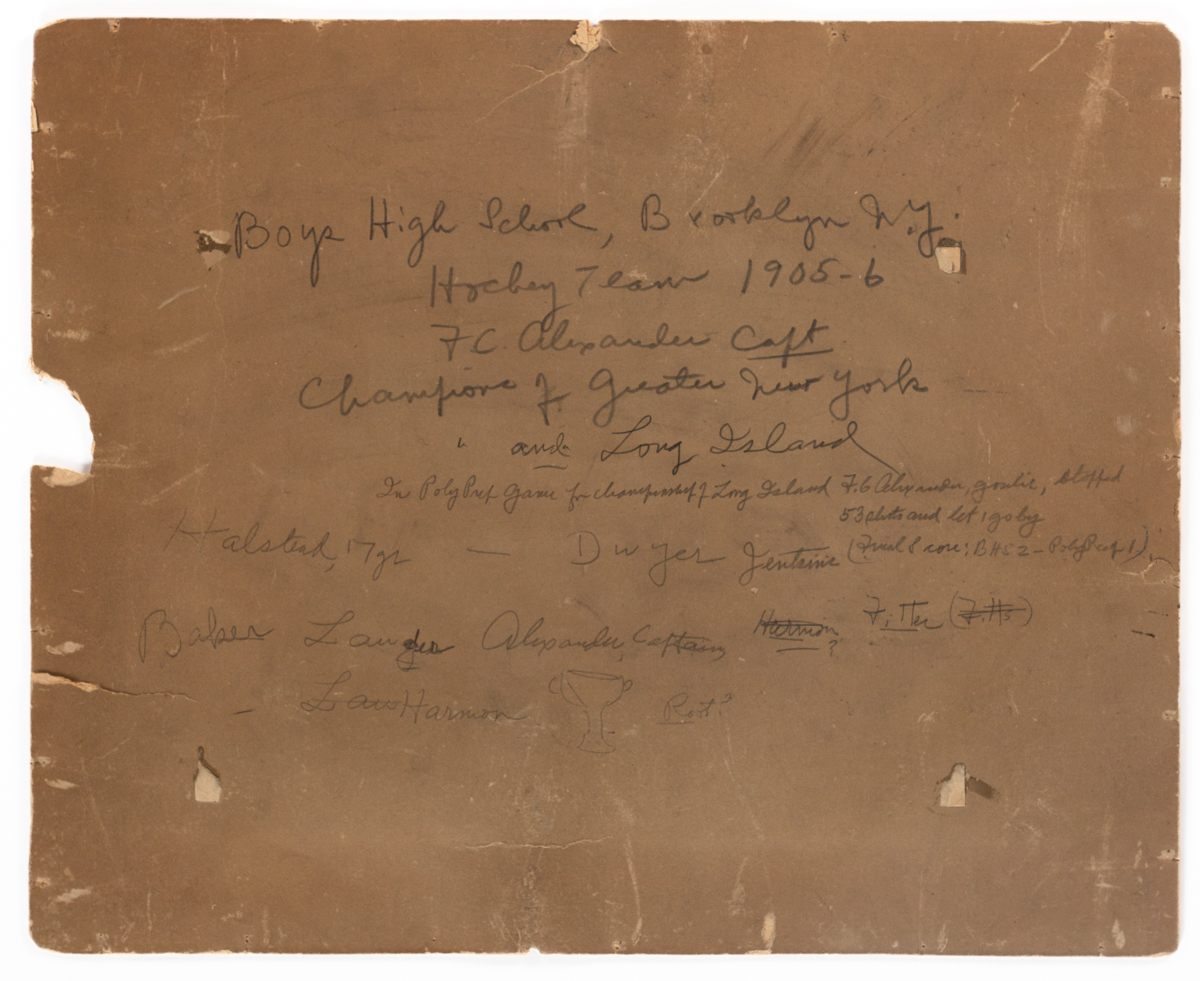 Boys High School, Brooklyn N.Y.
Hockey Team 1905-6
F C. Alexander Capt
Champions of Greater New York
" and Long Island
In Poly Prep Game for championship of Long Island F.C Alexander, goalie, stopped
53 shots and let 1 go by
(Final Score: BHS 2 - Poly Prep 1).
Halstead, 17 yr — Dwyer Jenkins
Baker Langdon Alexander, Captain, Harmon? Fitter (Fitts)
- Law Harmon Root?